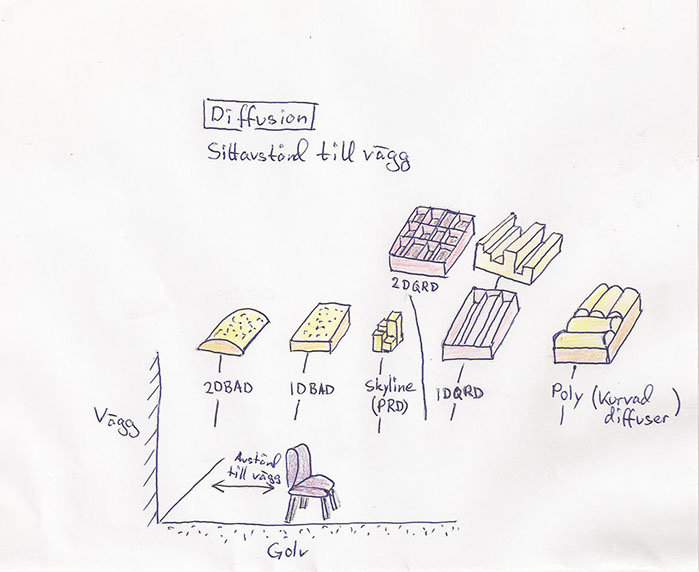 Diffusion
Sittavstånd till vägg
2DQRD
2DBAD
1DBAD
Skyline
(PRD)
1DQRD
Poly (Kurvad
diffuser)
Vägg
Avstånd
till vägg
Golv